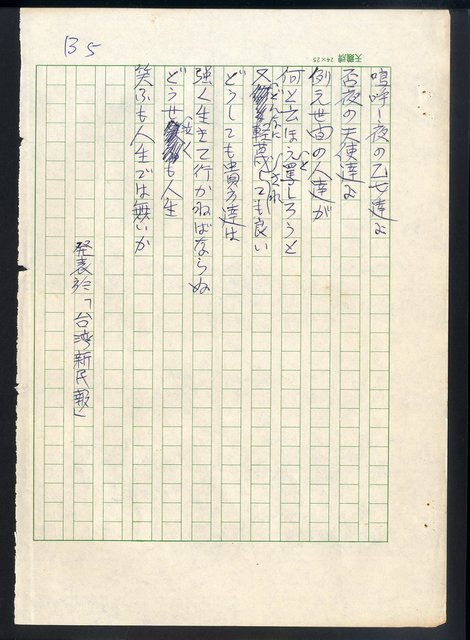 B5
天龍牌 24×25
嗚呼!夜の乙女達よ
否夜の天使達よ
例え世間の人達が
何と云ほえ罵しろうと
又どんなに軽蔑されても良い
どうしても貴方達は
強く生きて行かねばならぬ
どうせ泣くも人生
笑ふも人生では無いか
発表於「台湾新民報」